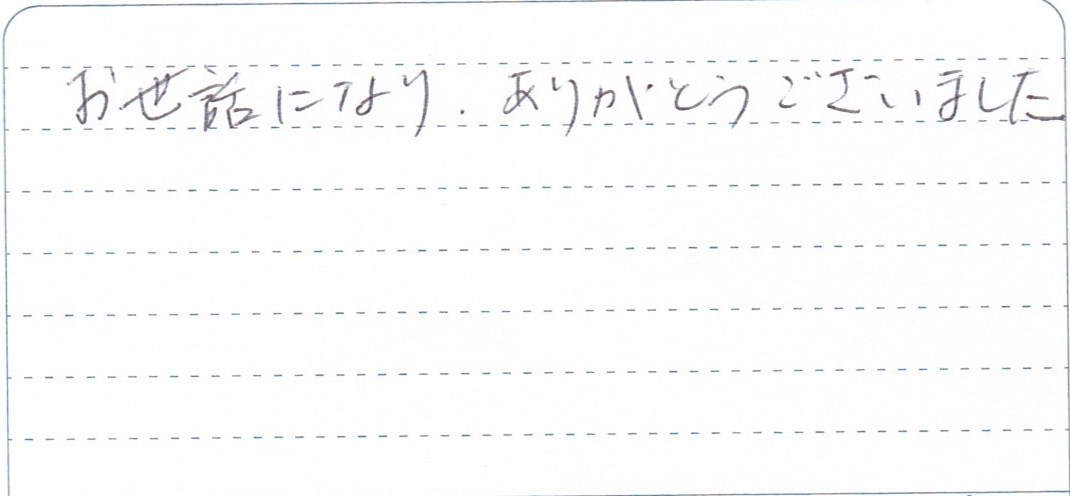 お世話になり.ありがとうございました